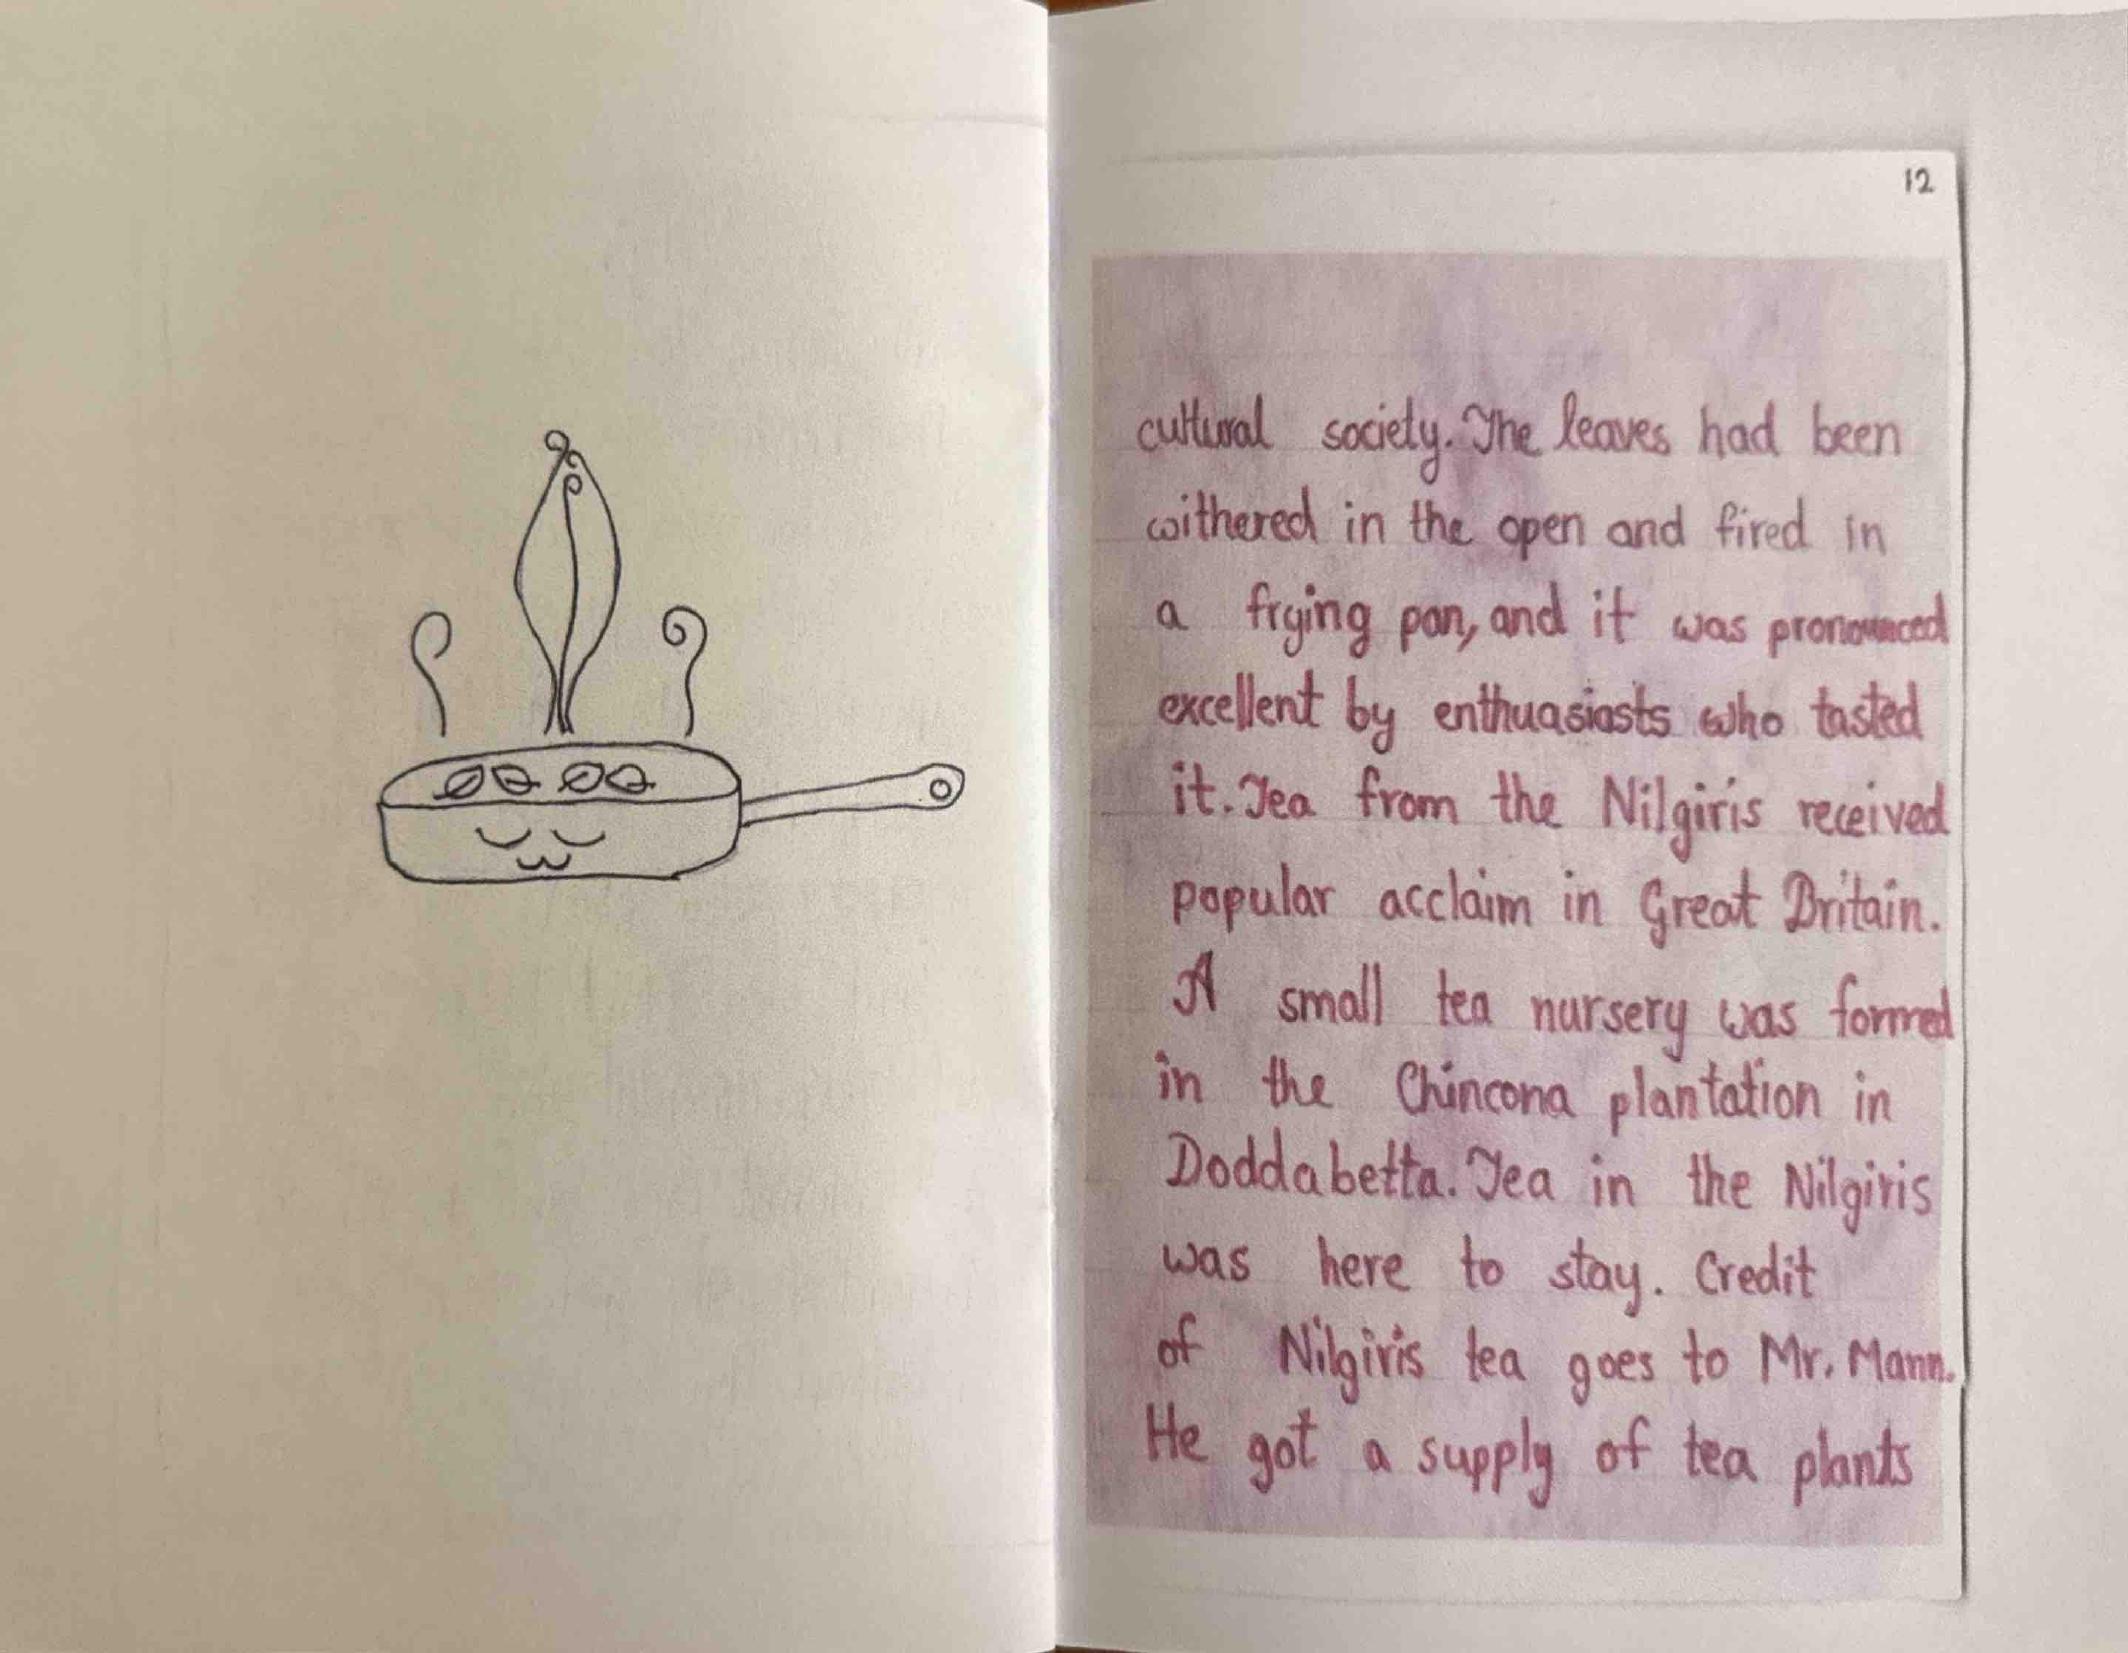 12
cultural society. The leaves had been
withered in the open and fired in
a frying pan, and it was pronounced
excellent by enthuasiasts who tasted
it. Tea from the Nilgiris received
popular acclaim in Great Britain.
A small tea nursery was formed
in the Chincona plantation in
Doddabetta. Tea in the Nilgiris
was here to stay. Credit
of Nilgiris tea goes to Mr. Mann.
He got a supply of tea plants